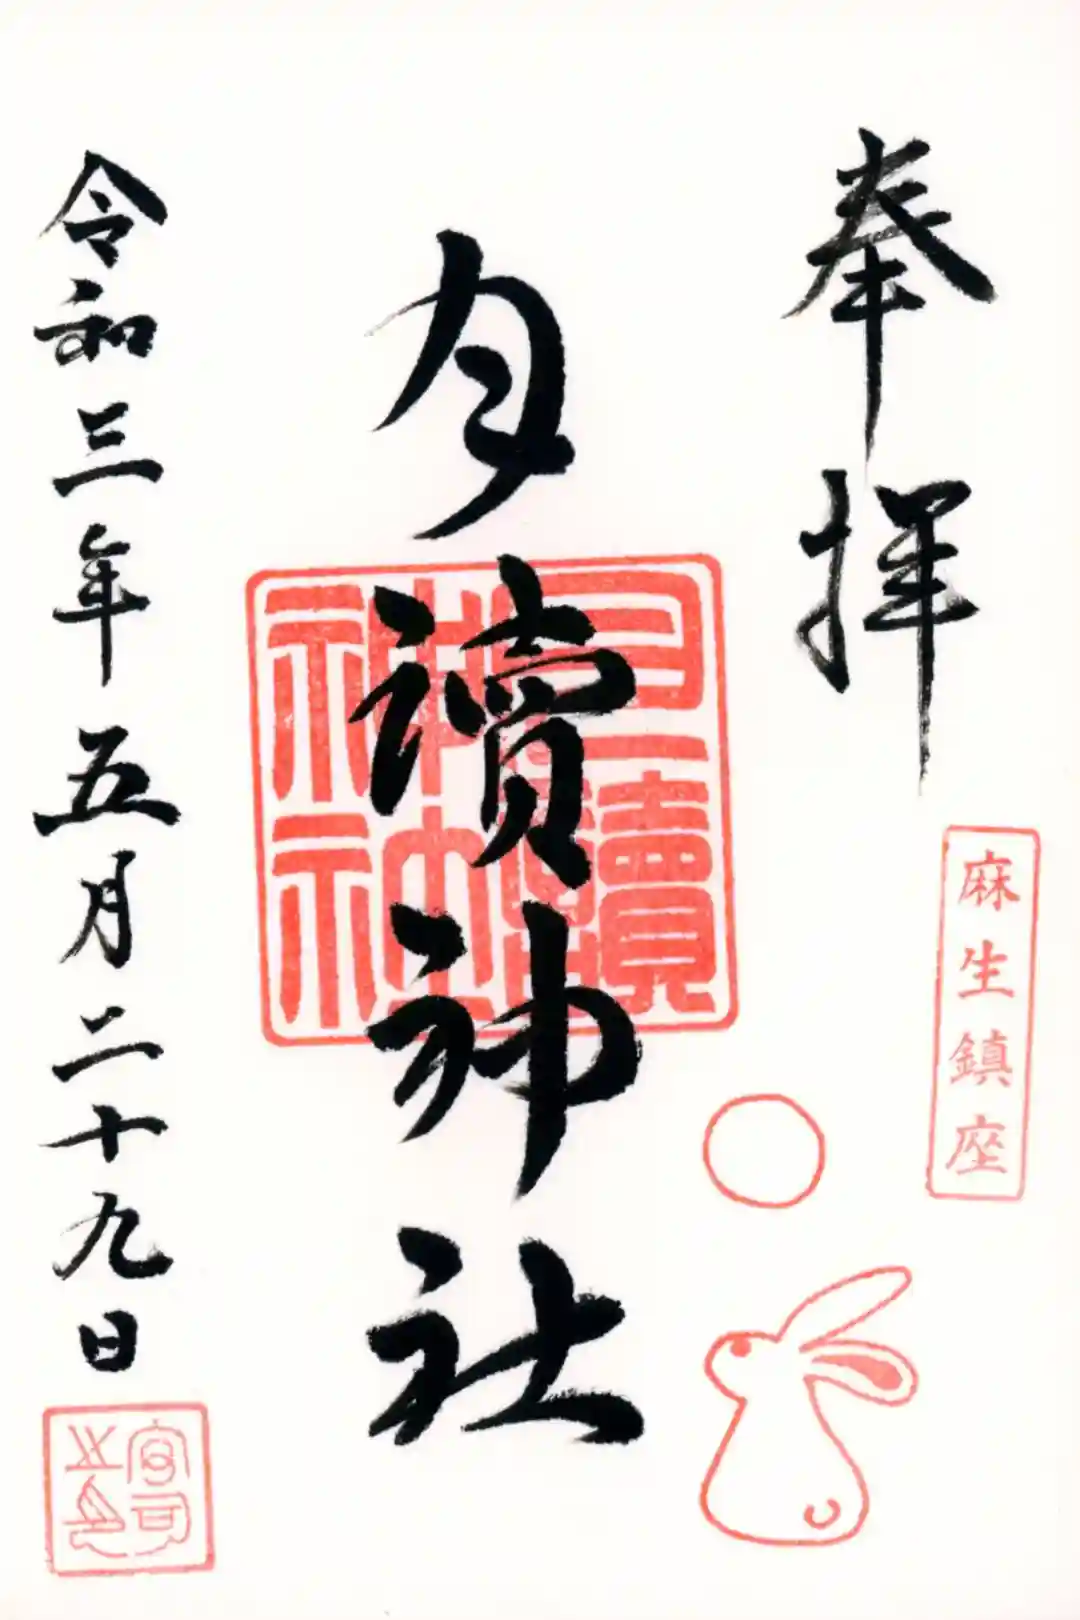 奉拝
麻生鎮座
月讀神社
月讀神社
令和三年五月二十九日
宮司之印